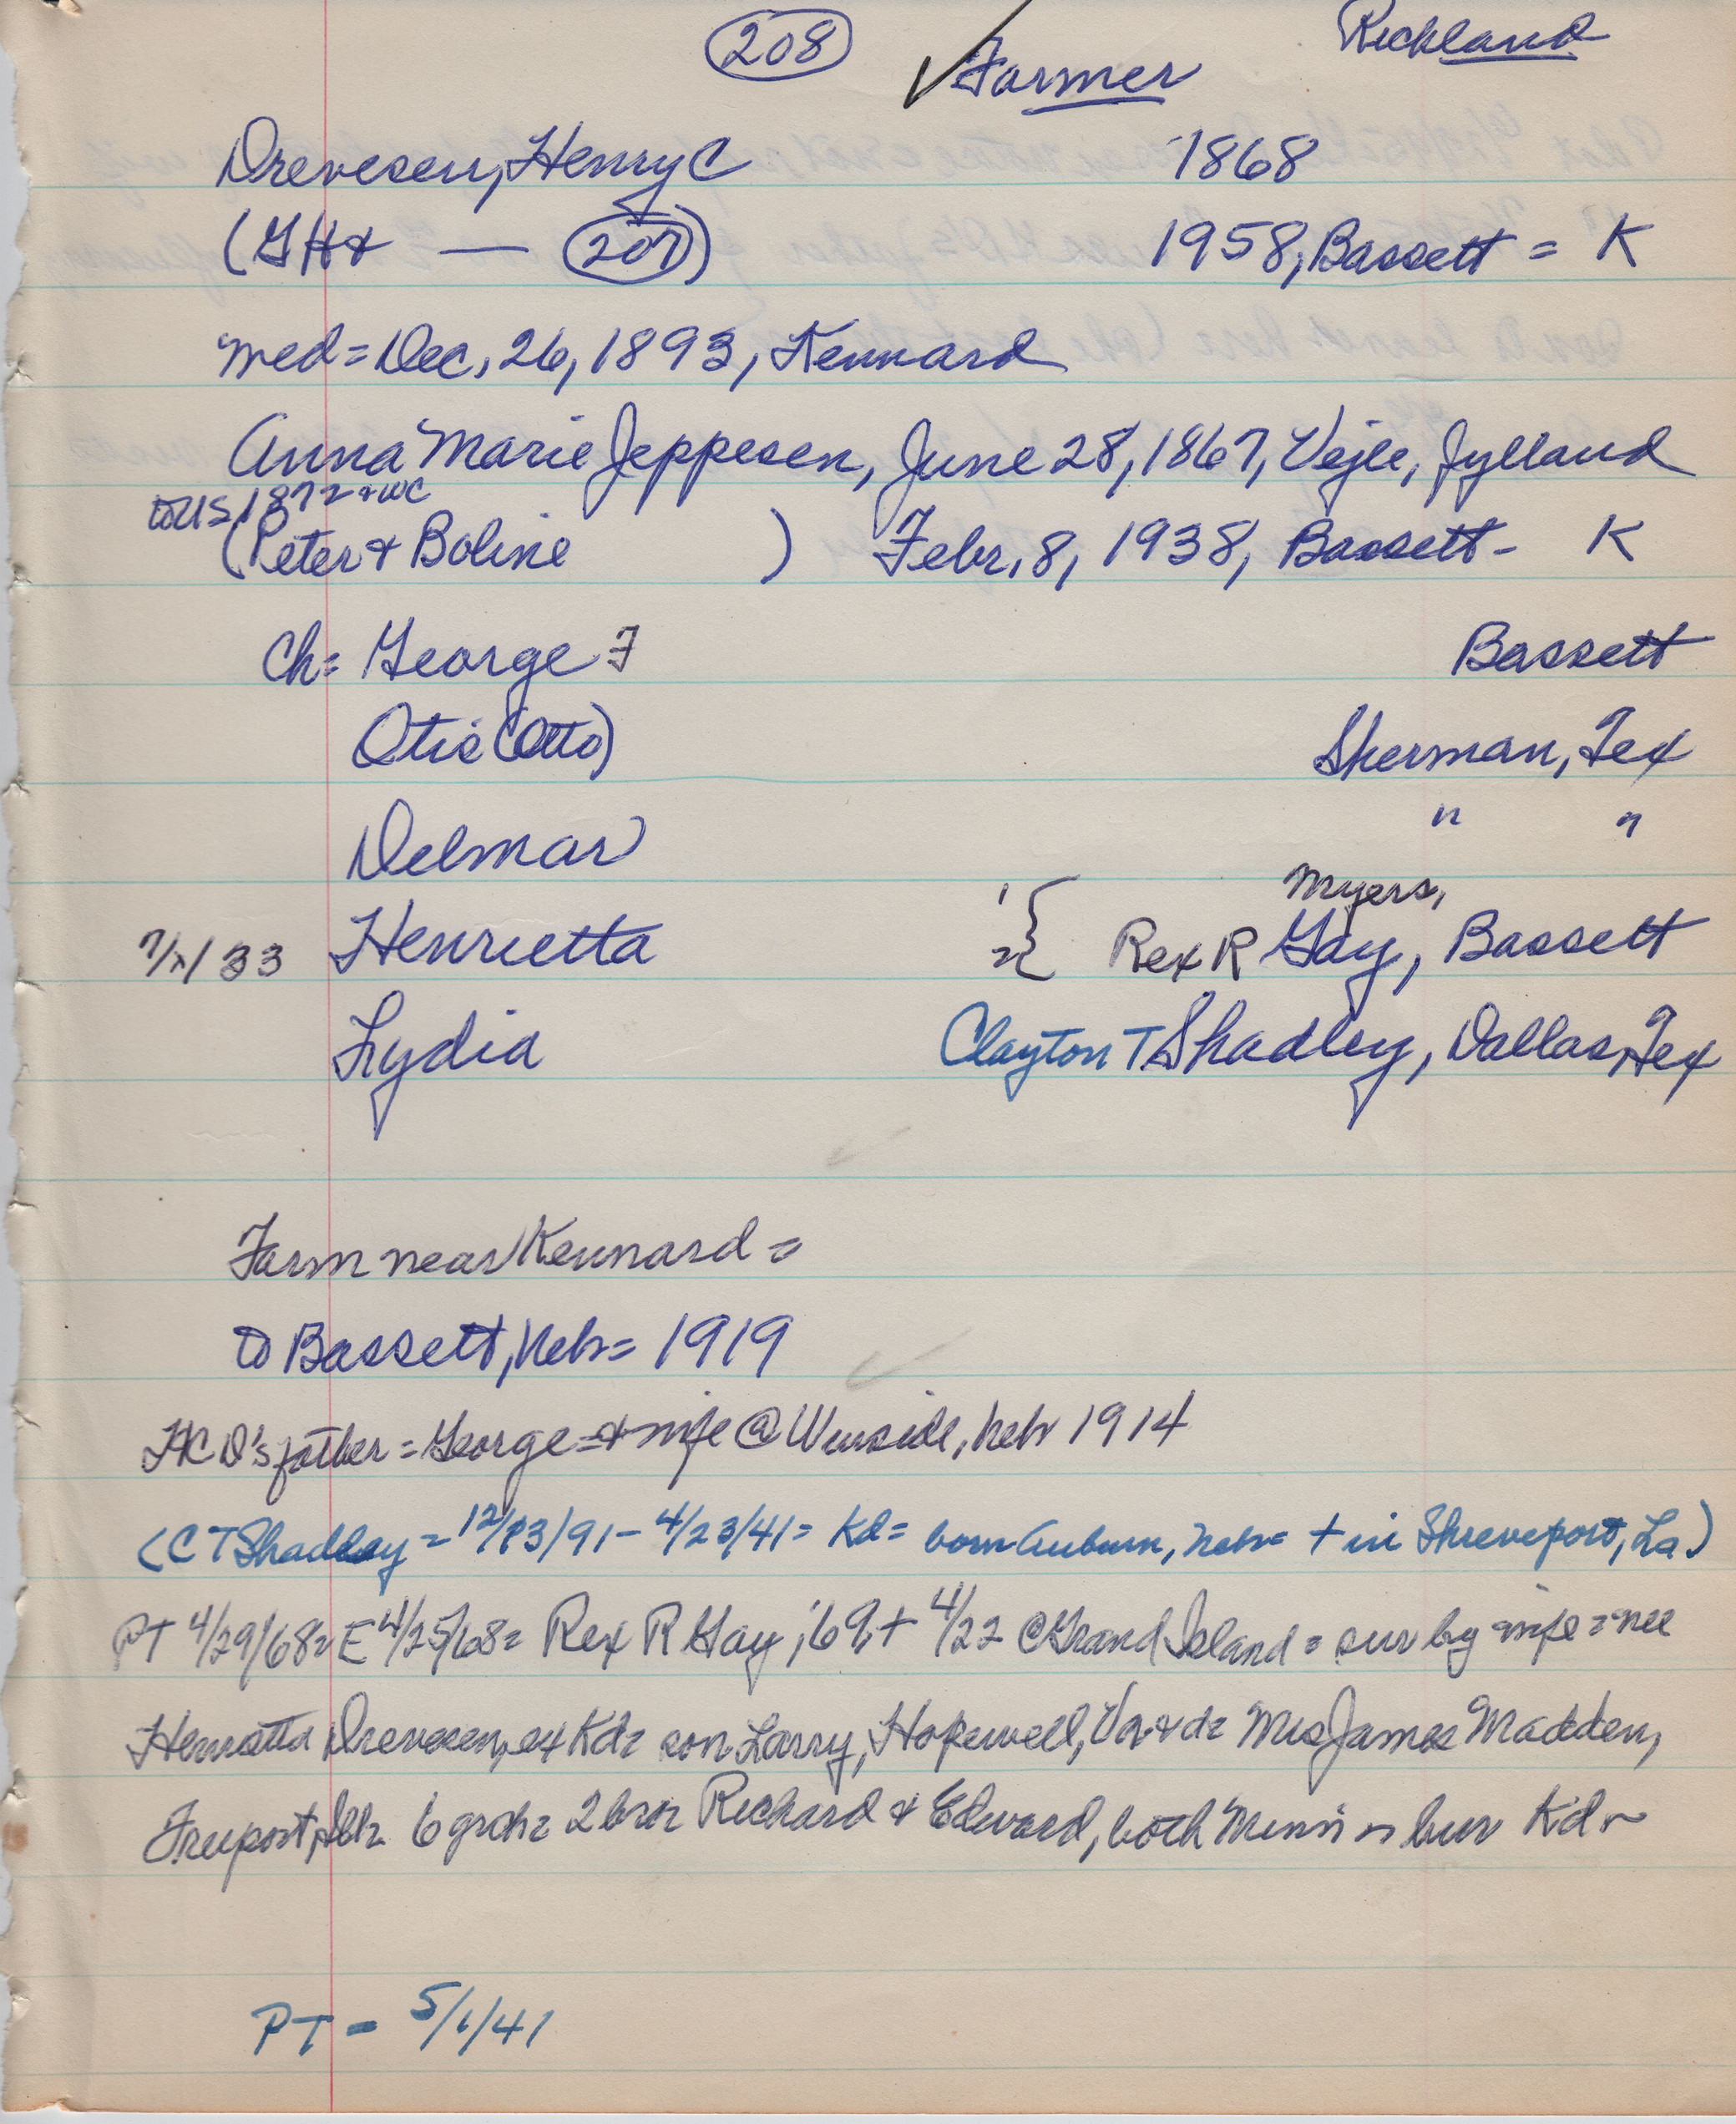 208 ✓ Farmer Richland
Drevesen, Henry C 1868
(GH & — 207) 1958, Bassett = K
med = Dec, 26, 1893, Kennard
Anna Marie Jeppesen, June 28, 1867, Vejle, Jylland
to US 1872 & WC
(Peter & Boline ) Febr, 8, 1938, Bassett - K
Ch: George F Bassett
Otis (Otto) Sherman, Tex
Delmar " "
Myers,
Henrietta Rex R Gay, Bassett
Lydia Clayton T Shadley, Dallas, Tex
Farm near Kennard =
to Bassett, Nebr = 1919
HC D's father = George = & wife @ Winside, Nebr 1914
(C T Shadley = 12/13/91 - 4/23/41 = Kd = born Auburn, Nebr = + in Shreveport, La)
PT 4/29/68 = E 4/25/68 = Rex R Gay, 69, + 4/22 @ Grand Island = sur by wife = nee
Henrietta Drevesen, ex Kd = son Larry, Hopewell, Va & d = Mrs James Madden,
Freeport, 6 grch = 2 bros Richard & Edward, both bur Kd
PT = 5/1/41